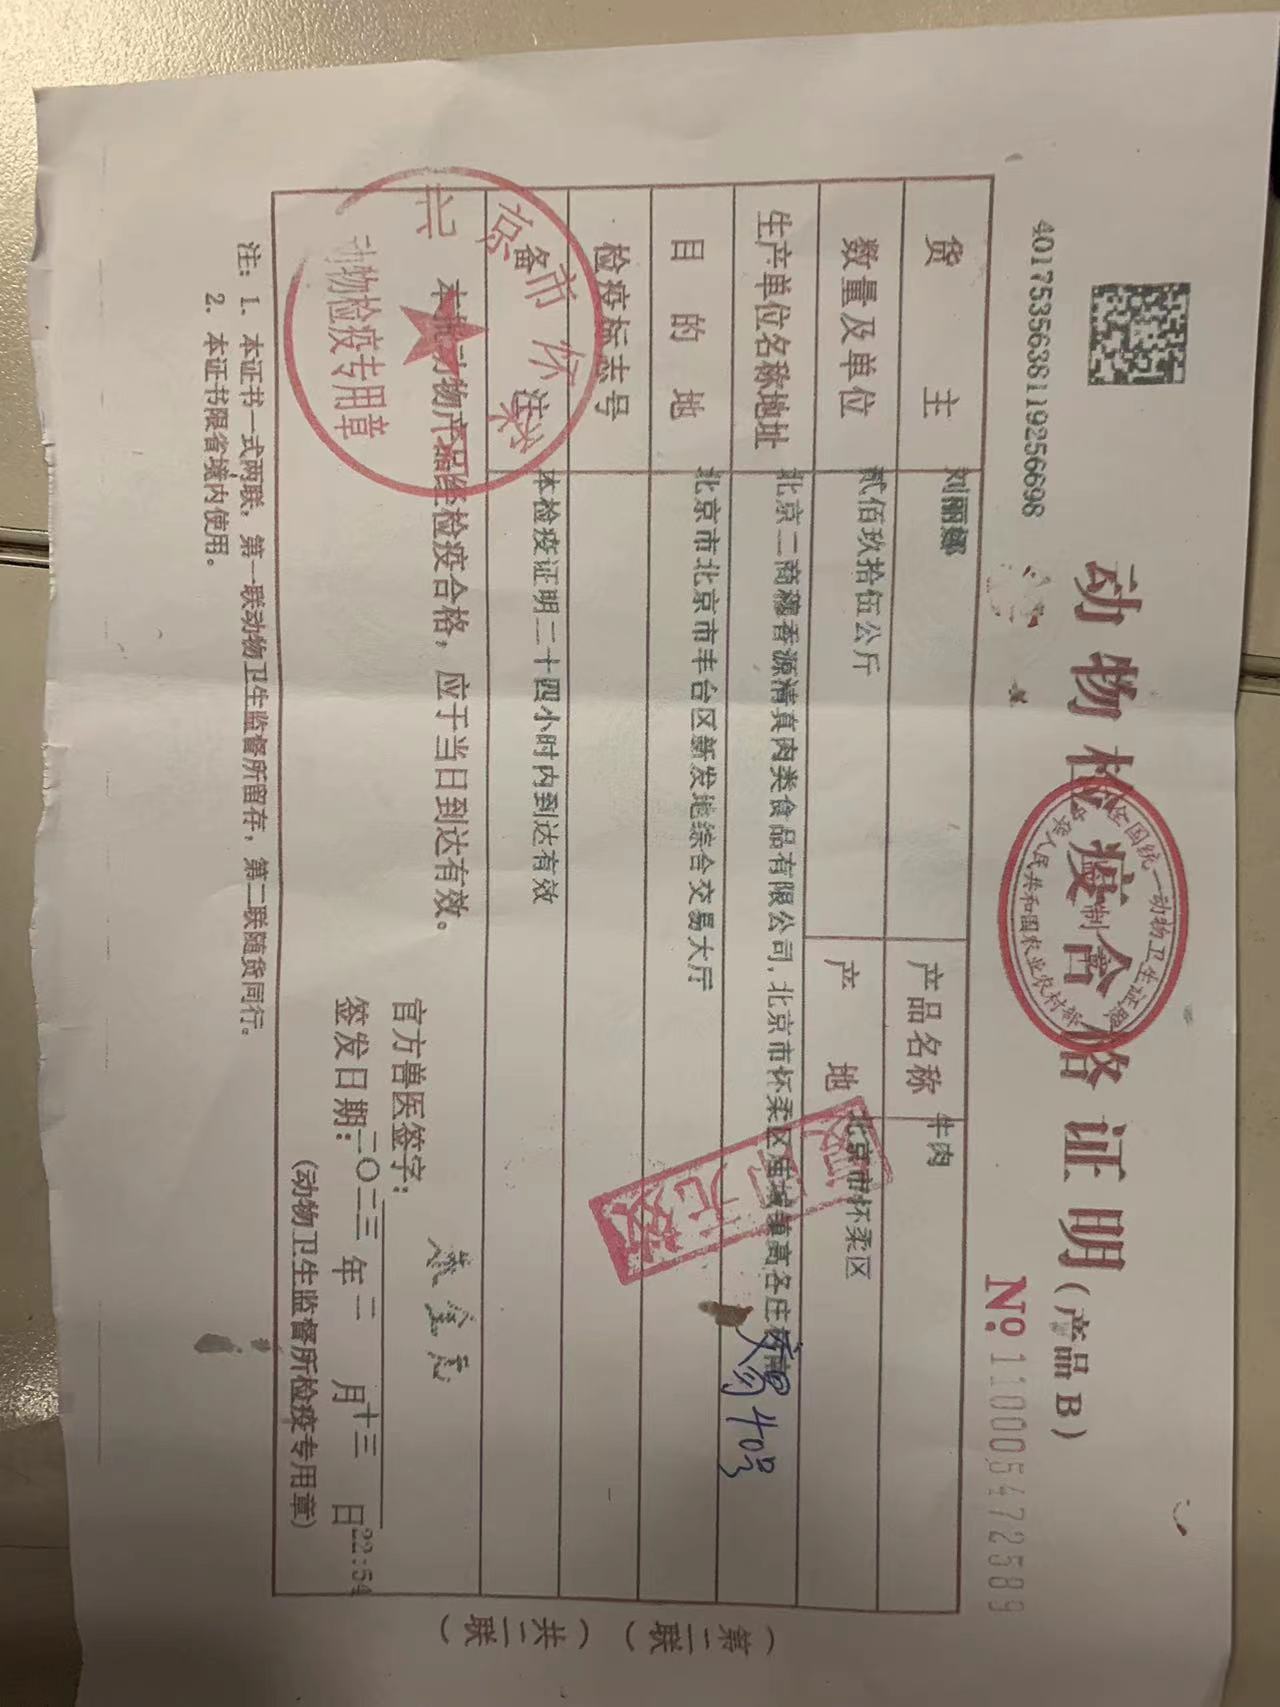 4017535638119256698
动物检疫合格证明(产品B)
全国统一动物卫生证章
中华人民共和国农业农村部
监制章
№ 110005472589
货主 刘丽娜 产品名称 牛肉
数量及单位 贰佰玖拾伍公斤 产地 北京市怀柔区
生产单位名称地址 北京二商穆香源清真肉类食品有限公司,北京市怀柔区庙城镇高各庄村南
40号
目的地 北京市北京市丰台区新发地综合交易大厅
检疫标志号
备注 本检疫证明二十四小时内到达有效
本批动物产品经检疫合格,应于当日到达有效。
官方兽医签字:
签发日期:二〇二三年二月十三日22:54
(动物卫生监督所检疫专用章)
北京市怀柔
动物检疫专用章
注:1. 本证书一式两联,第一联动物卫生监督所留存,第二联随货同行。
2. 本证书限省境内使用。
(第二联)
(共二联)